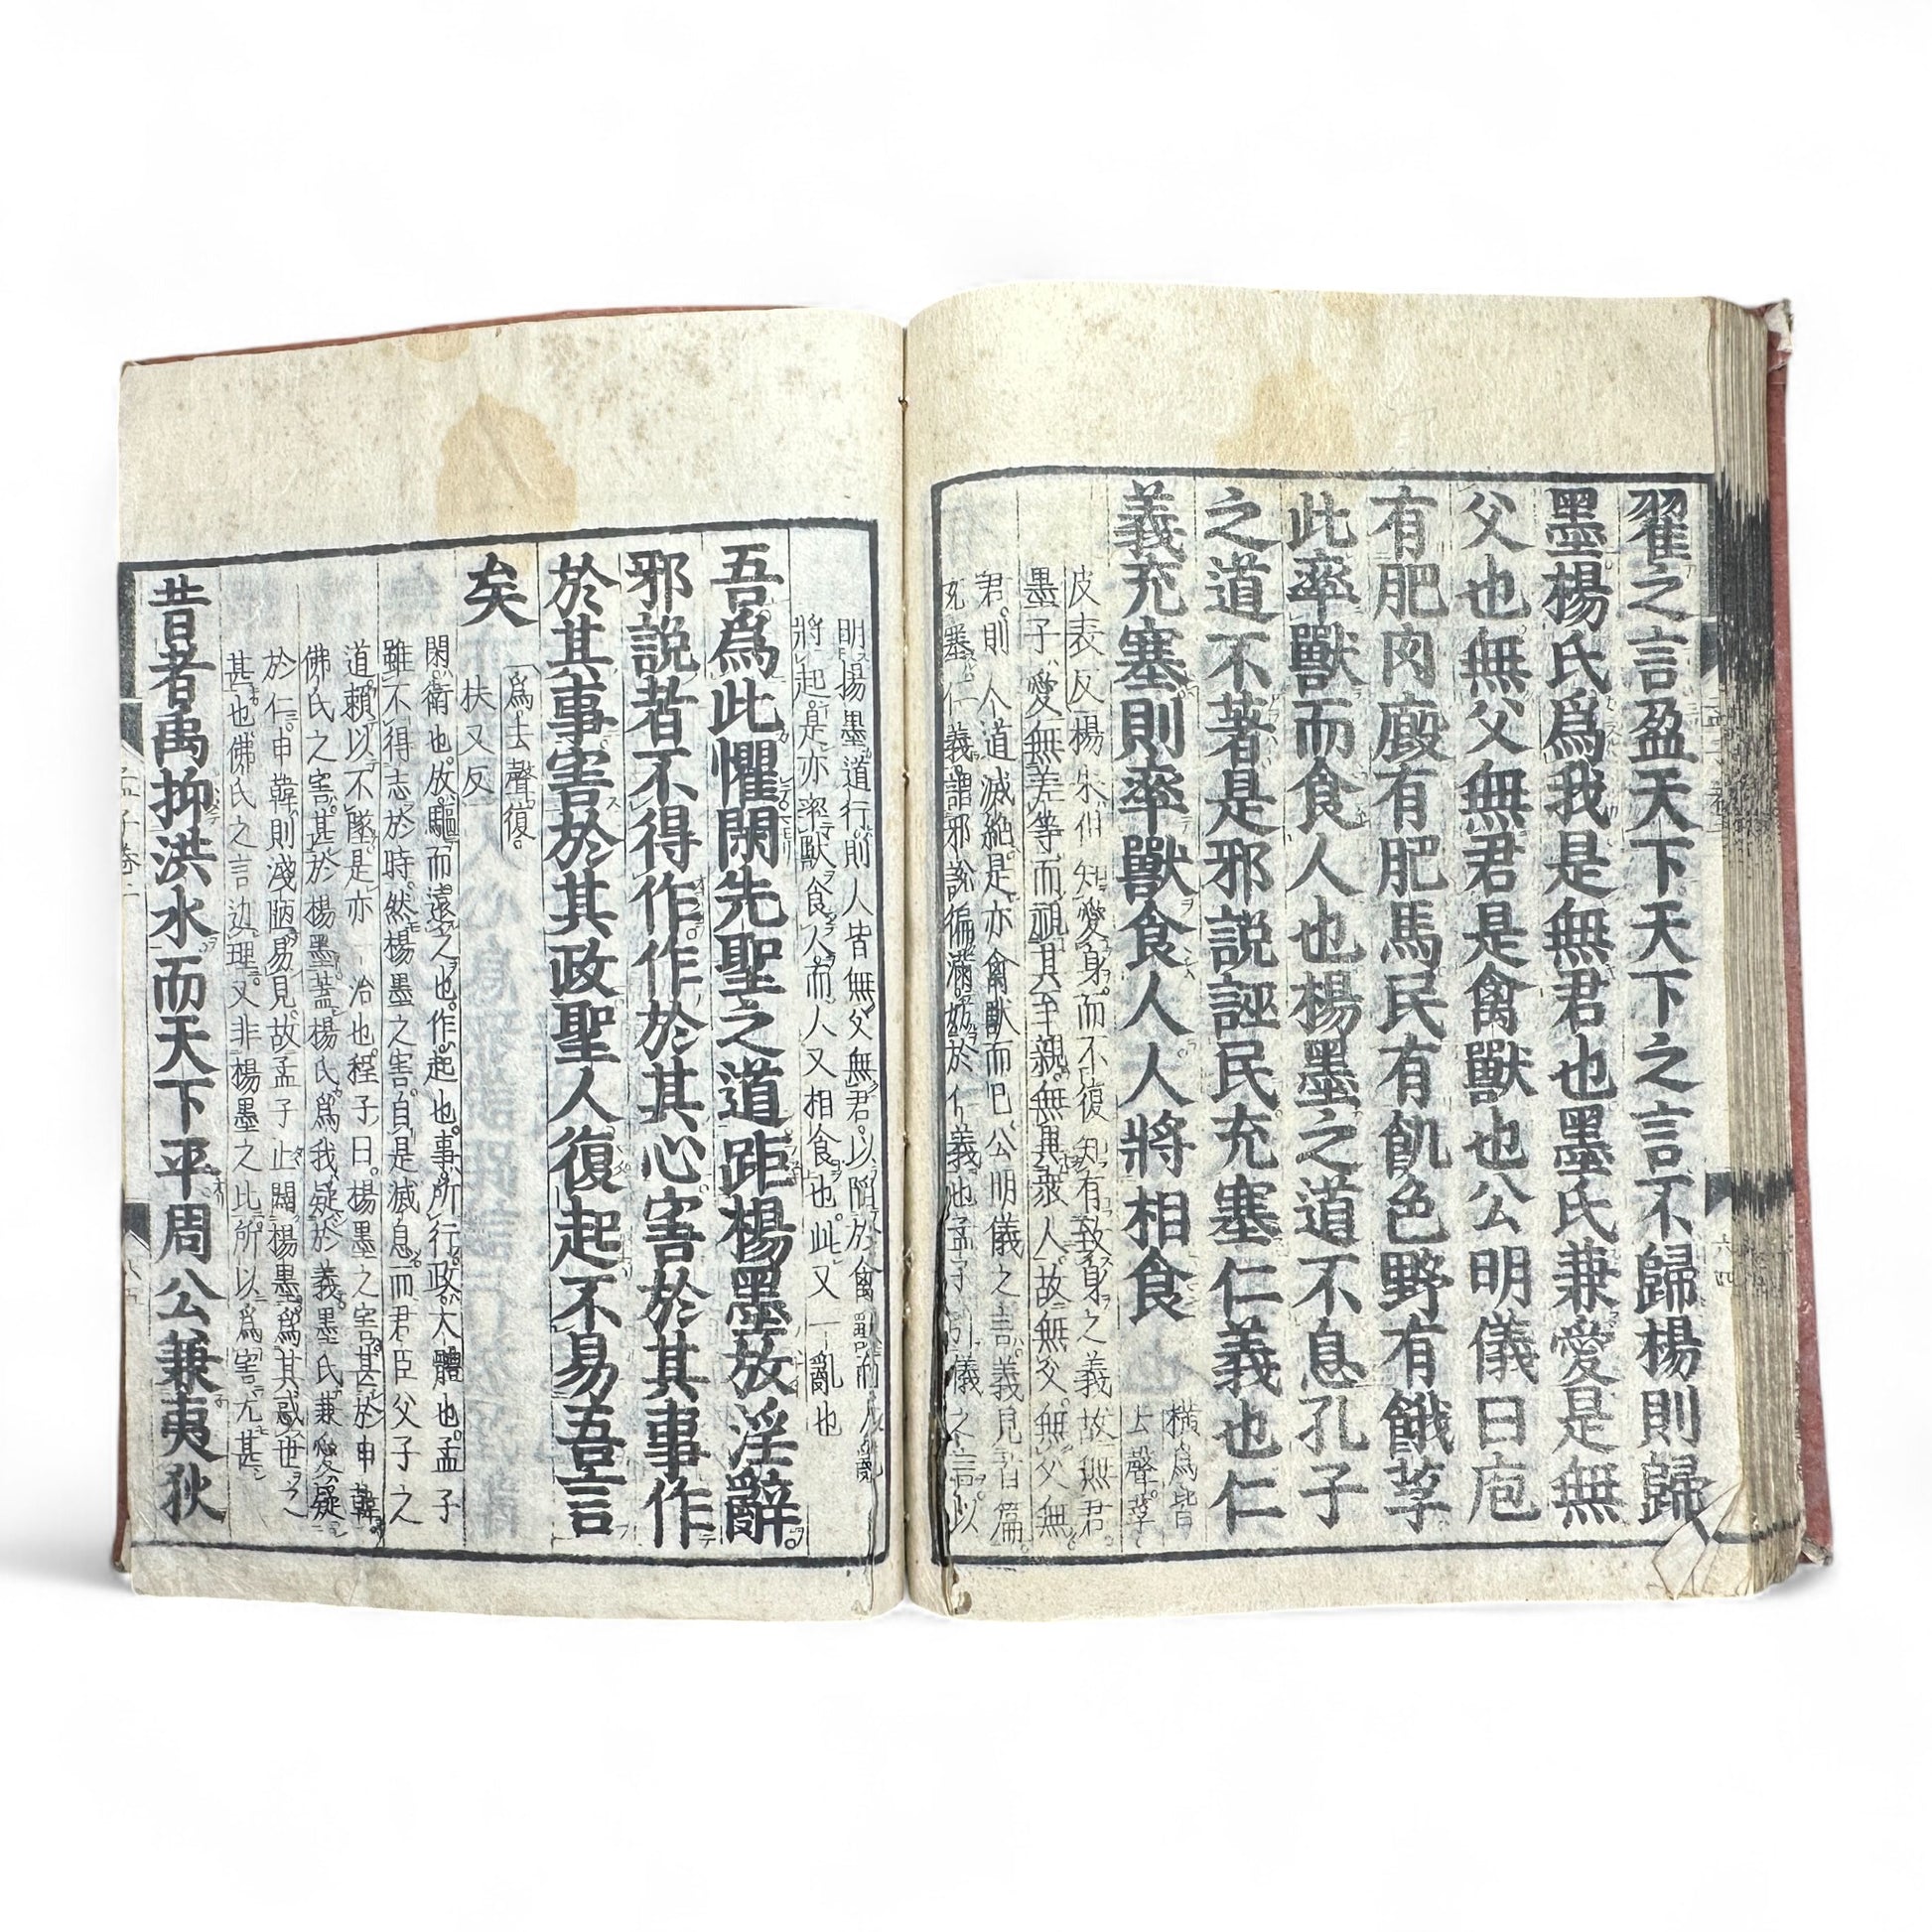 翟之言盈天下天下之言不歸楊則歸
墨楊氏爲我是無君也墨氏兼愛是無
父也無父無君是禽獸也公明儀曰庖
有肥肉廄有肥馬民有飢色野有餓莩
此率獸而食人也楊墨之道不息孔子
之道不著是邪說誣民充塞仁義也仁
義充塞則率獸食人人將相食
橫爲皆
上聲莩
皮表反楊朱但知愛身而不復知有致身之義故無君
墨子愛無差等而視其至親無異衆人故無父無父無
君則人道滅絶是亦禽獸而已公明儀之言義見首篇
充塞仁義謂邪說徧滿妨於仁義也孟子引儀之言以
明楊墨道行則人皆無父無君以陷於禽獸而大亂
將起是亦率獸食人而人又相食也此又一亂也
吾爲此懼閑先聖之道距楊墨放淫辭
邪說者不得作作於其心害於其事作
於其事害於其政聖人復起不易吾言
矣
爲去聲復
扶又反
閑衛也放驅而遠之也作起也事所行政大體也孟子
雖不得志於時然楊墨之害自是滅息而君臣父子之
道賴以不墜是亦一治也程子曰楊墨之害甚於申韓
佛氏之害甚於楊墨蓋楊氏爲我疑於義墨氏兼愛疑
於仁申韓則淺陋易見故孟子止闢楊墨爲其惑世之
甚也佛氏之言近理又非楊墨之比所以爲害尤甚
昔者禹抑洪水而天下平周公兼夷狄
孟子卷二